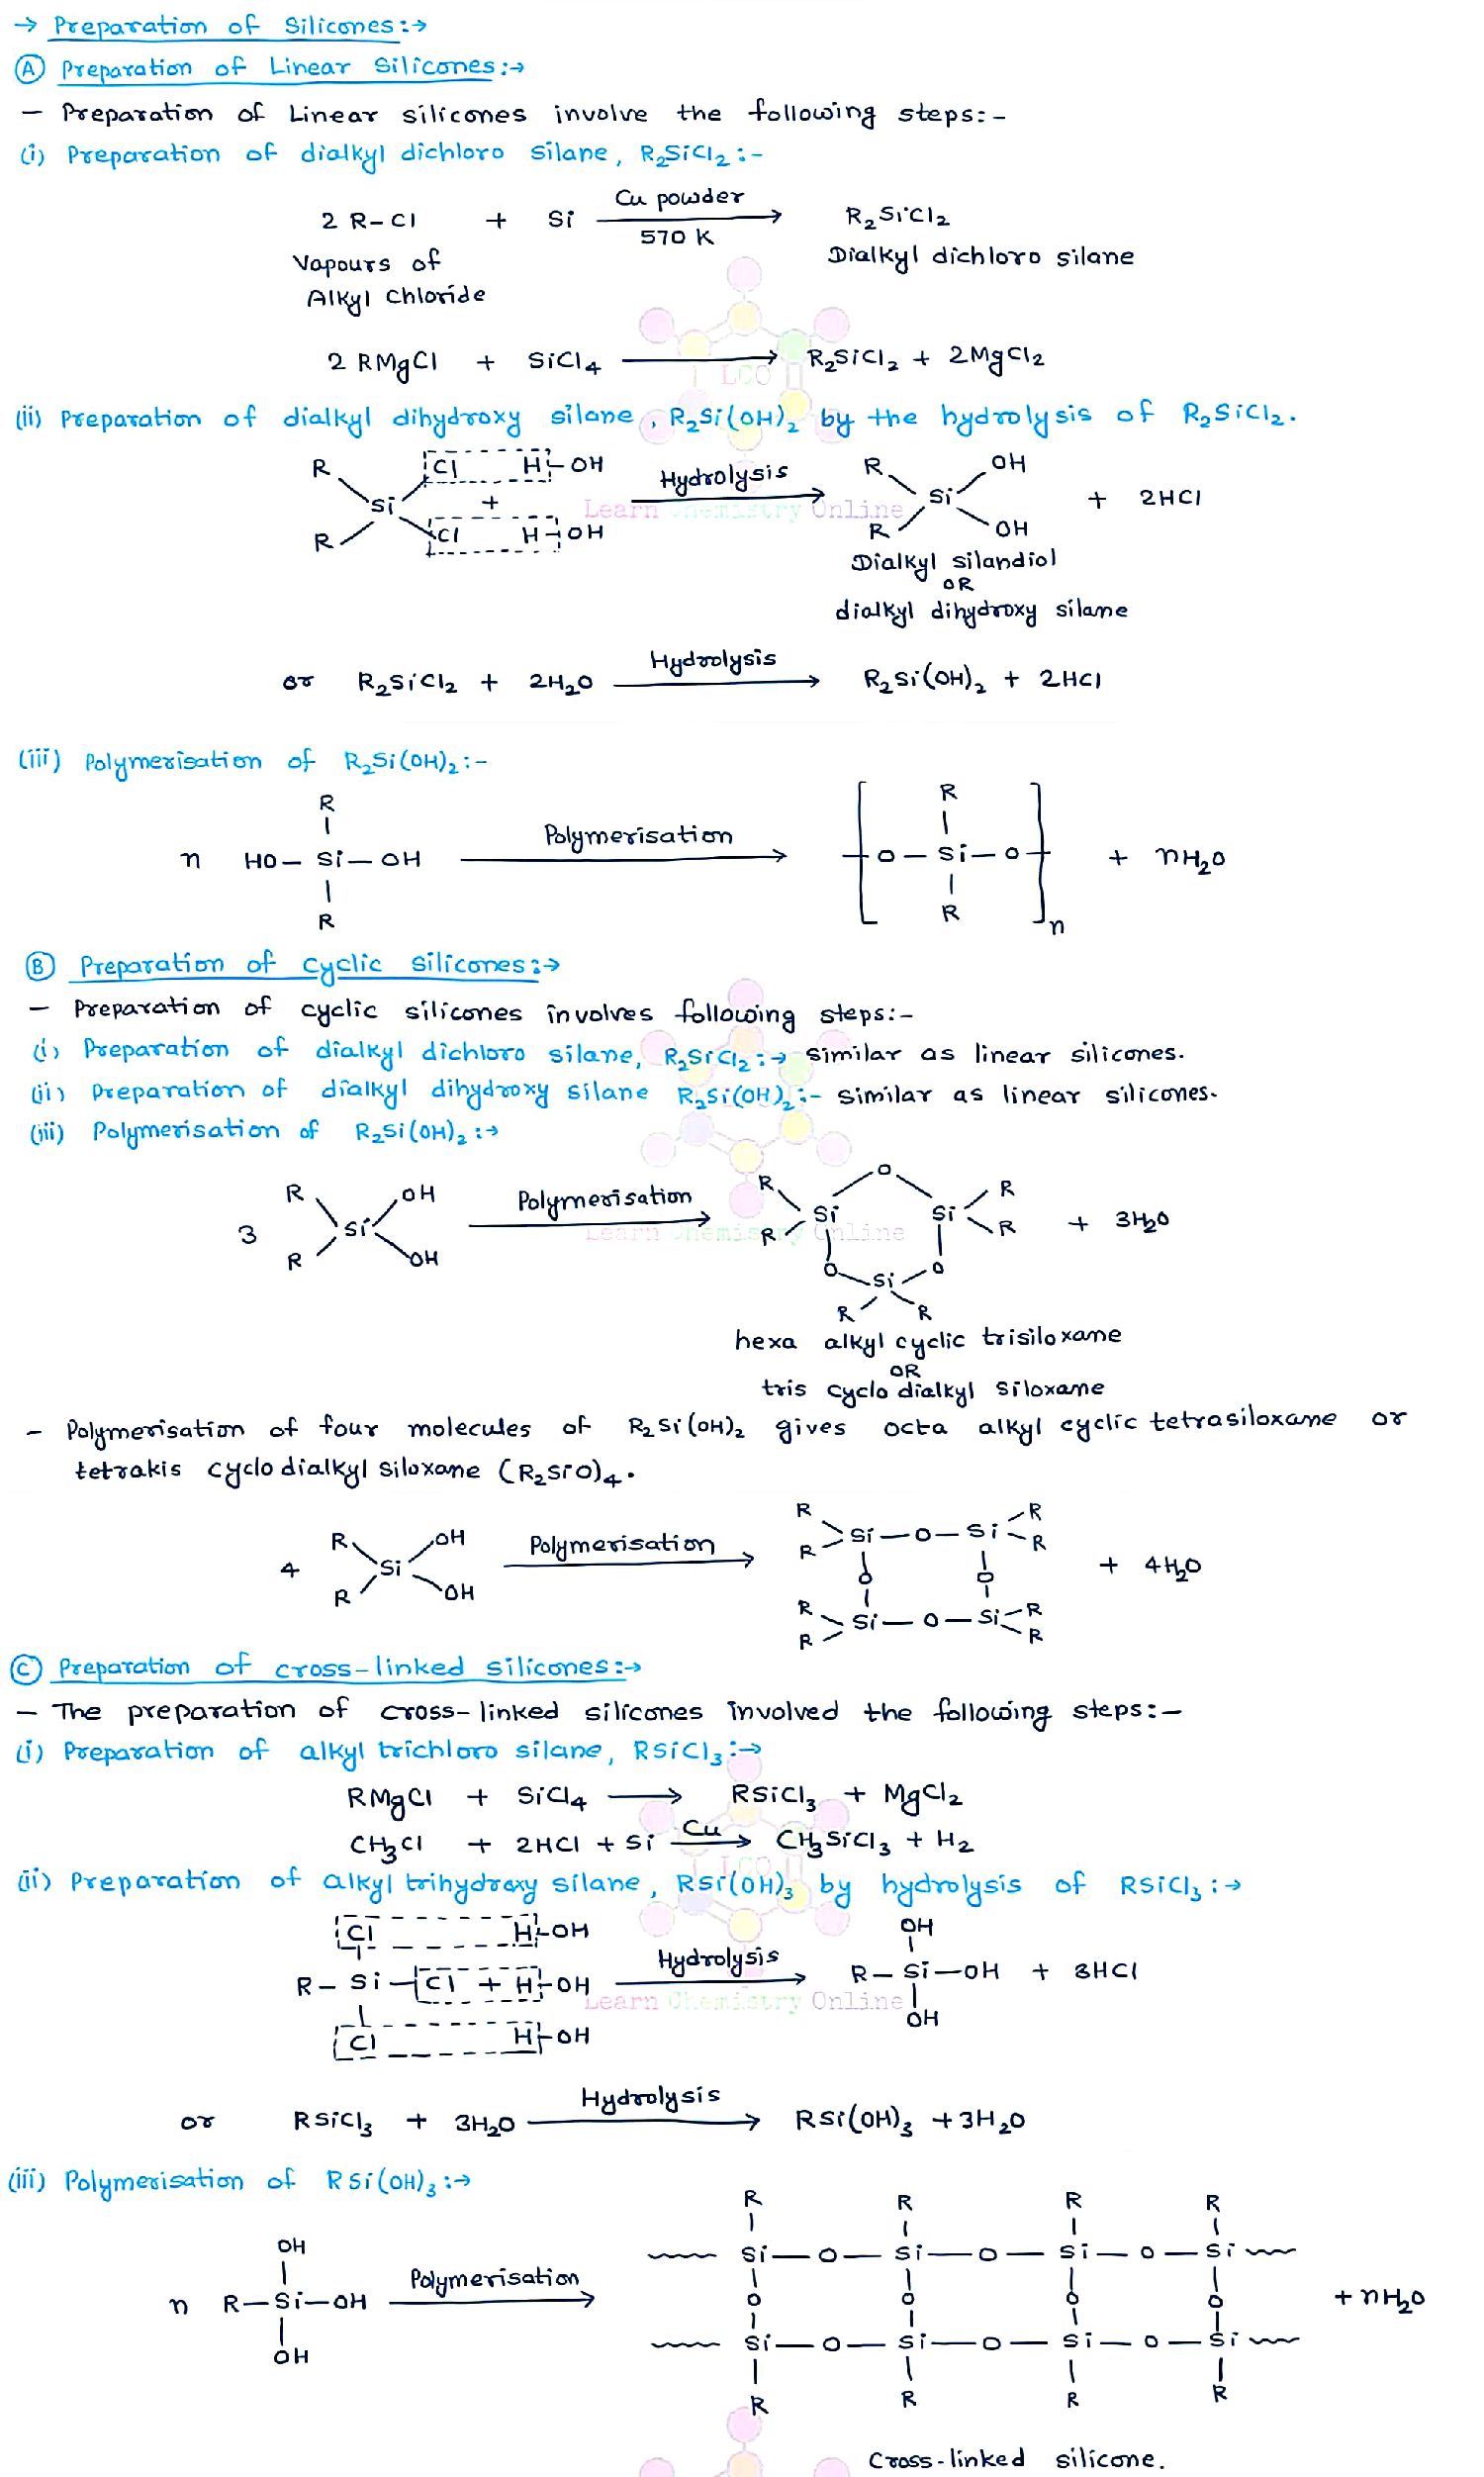 → Preparation of Silicones:→
Ⓐ Preparation of Linear Silicones:→
– Preparation of Linear silicones involve the following steps:-
(i) Preparation of dialkyl dichloro silane, R₂SiCl₂:-
2 R-Cl + Si Cu powder → 570 K R₂SiCl₂
Vapours of Dialkyl dichloro silane
Alkyl Chloride
2 RMgCl + SiCl₄ → R₂SiCl₂ + 2MgCl₂
LCO
(ii) Preparation of dialkyl dihydroxy silane, R₂Si(OH)₂ by the hydrolysis of R₂SiCl₂.
R Cl H-OH Hydrolysis R OH
Si + → Si + 2HCl
R Cl H-OH R OH
Learn Chemistry Online
Dialkyl silandiol
OR
dialkyl dihydroxy silane
or R₂SiCl₂ + 2H₂O Hydrolysis → R₂Si(OH)₂ + 2HCl
(iii) Polymerisation of R₂Si(OH)₂:-
R R
n HO-Si-OH Polymerisation → [-O-Si-O-]n + nH₂O
R R
Ⓑ Preparation of cyclic silicones:→
– Preparation of cyclic silicones involves following steps:-
(i) Preparation of dialkyl dichloro silane, R₂SiCl₂:→ similar as linear silicones.
(ii) Preparation of dialkyl dihydroxy silane R₂Si(OH)₂:- similar as linear silicones.
(iii) Polymerisation of R₂Si(OH)₂:→
R OH Polymerisation R O R
3 Si → Si Si + 3H₂O
R OH R R
Learn Chemistry Online
O Si O
R R
hexa alkyl cyclic trisiloxane
OR
tris cyclo dialkyl siloxane
– Polymerisation of four molecules of R₂Si(OH)₂ gives octa alkyl cyclic tetrasiloxane or
tetrakis cyclo dialkyl siloxane (R₂SiO)₄.
R R
R OH Polymerisation R Si-O-Si R
4 Si → O O + 4H₂O
R OH R Si-O-Si R
R R
Ⓒ Preparation of cross-linked silicones:→
– The preparation of cross-linked silicones involved the following steps:-
(i) Preparation of alkyl trichloro silane, RSiCl₃:→
RMgCl + SiCl₄ → RSiCl₃ + MgCl₂
CH₃Cl + 2HCl + Si Cu → CH₃SiCl₃ + H₂
LCO
(ii) Preparation of alkyl trihydroxy silane, RSi(OH)₃ by hydrolysis of RSiCl₃:→
Cl H-OH OH
R-Si-Cl + H-OH Hydrolysis → R-Si-OH + 3HCl
Cl H-OH OH
Learn Chemistry Online
or RSiCl₃ + 3H₂O Hydrolysis → RSi(OH)₃ + 3H₂O
(iii) Polymerisation of RSi(OH)₃:→
R R R R
OH Si-O-Si-O-Si-O-Si
n R-Si-OH Polymerisation → O O O O + nH₂O
OH Si-O-Si-O-Si-O-Si
R R R R
Cross-linked silicone.